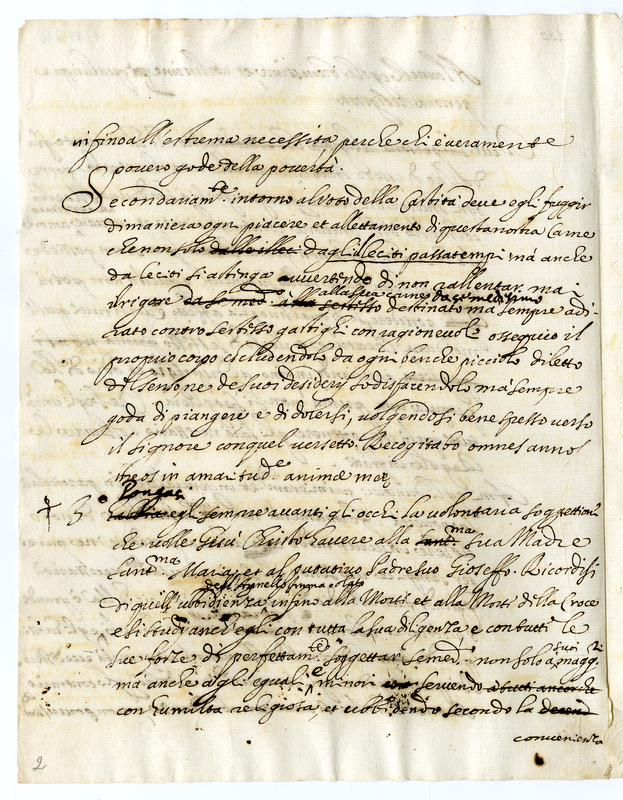 infino all'estrema necessità perche chi è veramente
povero gode della povertà.
Secondariam.te intorno al voto della Castità deve egli fuggir
di maniera ogni piacere et allettamento di questa nostra Carne
che non solo dagl'illeciti passatempi ma anche
da leciti si astinga avvertendo di non rallentar mai
il rigore alla sua carne da se medesimo
destinato ma sempre adi-
rato contro se stesso gastighi con ragionevole ossequio il
proprio corpo escludendolo da ogni benche picciolo diletto
del senso, ne de suoi desiderij sodisfacendolo ma sempre
goda di piangere e di dolersi, volgendosi bene spesso verso
il Signore con quel versetto. Recogitabo omnes annos
meos in amaritud.e animæ meę
Pongasi
3° egli sempre avanti gli occhi la volontaria soggettione
che volle Giesù Christo havere alla sua Madre
Sant.ma Maria, et al putativo Padre suo Gioseffo. Ricordisi
di quell'ubbidienza infino alla Morte et alla Morte della Croce
e si studi anch'egli con tutta la sua diligenza e con tutte le
sue forze di perfettam.te soggettar se med.o non solo a suoi magg.ri
ma anche a gli equali e minori servendo
con humiltà religiosa, et ubbidendo secondo la
convenienza
2